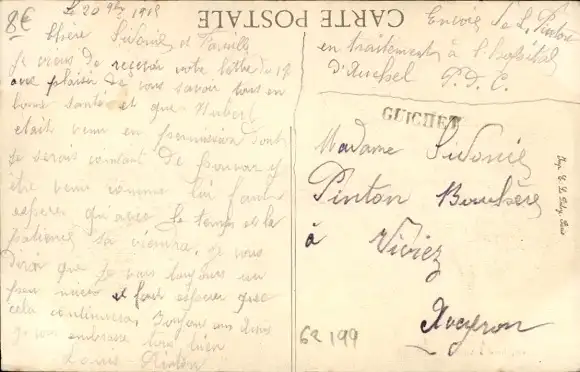 8€
Le 20 9bre 1915
Chère Sidonie et Famille
je viens de recevoir votre lettre du 17
avec plaisir de vous savoir tous en
bonne santé et que Hubert
était venu en permission dont
je serais content de pouvoir y
être venu comme lui faut
esperer qu'avec le temps et la
patience sa viendra. je vous
dirai que je vais toujours un
peu mieux et faut esperer que
cela continuera. Bonjour aux
je vous embrasse tous bien
Louis Pinton
CARTE POSTALE
Envoi de L. Pinton
en traitement à l'hôpital
d'Auchel P. D. C.
GUICHET
Madame Sidonie
Pinton Bouchère
à Viviez
Aveyron
62 199